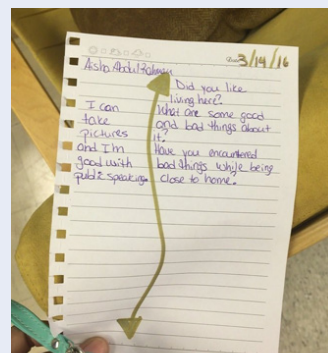 Date 3/14/16
Asha Abdulrahman
Did you like
living here?
What are some good
and bad things about
it.
Have you encountered
bad things while being
close to home.
I can
take
pictures
and I'm
good with
public speaking.